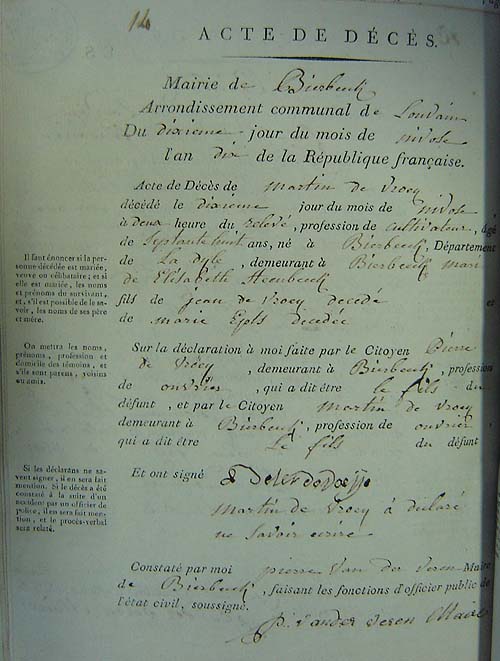 14
ACTE DE DÉCÈS.
Mairie de Bierbeek
Arrondissement communal de Louvain
Du dixieme jour du mois de nivose
l'an dix de la République française.
Acte de Décès de martin de Vroey
décédé le dixieme jour du mois de nivose
à deux heure du relevé, profession de cultivateur, âgé
de septante huit ans, né à Bierbeeck, Département
de La dyle, demeurant à Bierbeeck mari
de Elisabeth
fils de jean de Vroey decedé et
de marie decedée
Il faut énoncer si la personne
décédée est mariée,
veuve ou célibataire; et si
elle est mariée, les noms
et prénoms du survivant,
et, s'il est possible de le savoir,
les noms de ses père
et mère.
Sur la déclaration à moi faite par le Citoyen Pierre
de Vroey, demeurant à Bierbeek, profession
de ouvrier, qui a dit être le fils du
défunt, et par le Citoyen martin de Vroey
demeurant à Bierbeek, profession de ouvrier
qui a dit être Le fils du défunt
On mettra les noms,
prénoms, profession et
domicile des témoins, et
s'ils sont parens, voisins
ou amis.
Et ont signé
martin de Vroey à déclaré
ne savoir ecrire
Si les déclarans ne savent
signer, il en sera fait
mention. Si le décès a été
constaté à la suite d'un
accident par un officier de
police, il en sera fait mention,
et le procès-verbal
sera relaté.
Constaté par moi pierre Van der Veren Maire
de Bierbeek, faisant les fonctions d'officier public de
l'état civil, soussigné.
p. vander veren Maire